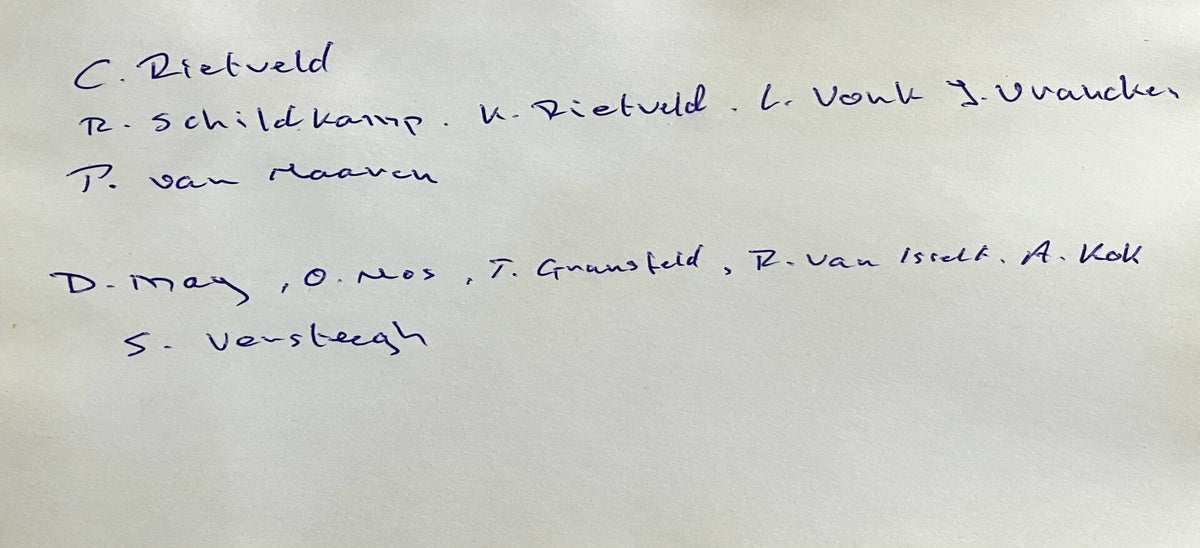 C. Rietveld
R. Schildkamp. K. Rietveld. L. Vonk J. Vrancken
P. van Maaren
D. May, O. Mos, T. Gransfeld, R. van Isselt. A. Kok
S. Versteegh